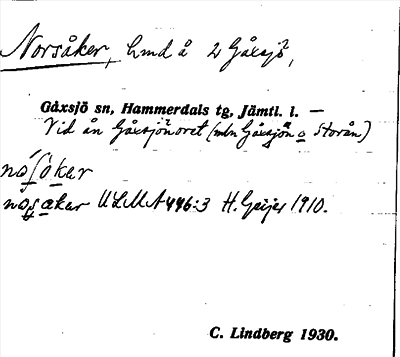 Norsåker, hmd å 2 Gåxsjö,
Gåxsjö sn, Hammerdals tg, Jämtl. l. —
Vid ån Gåxsjönoret (mln Gåxsjön o Storån)
åker
ULMA 446:3 H. Geijer 1910.
C. Lindberg 1930.